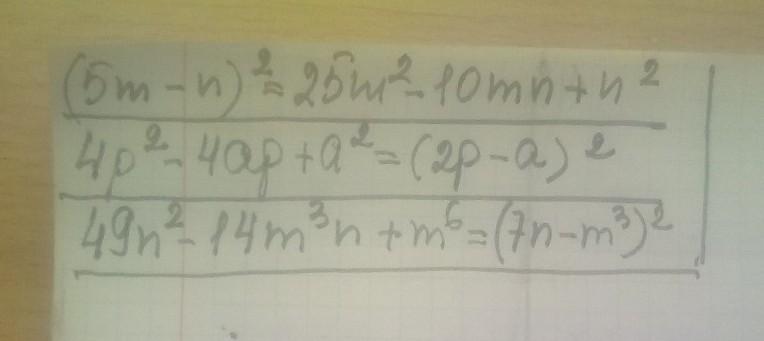 (5m - n)² = 25m² - 10mn + n²
4p² - 4ap + a² = (2p - a)²
49n² - 14m³n + m⁶ = (7n - m³)²